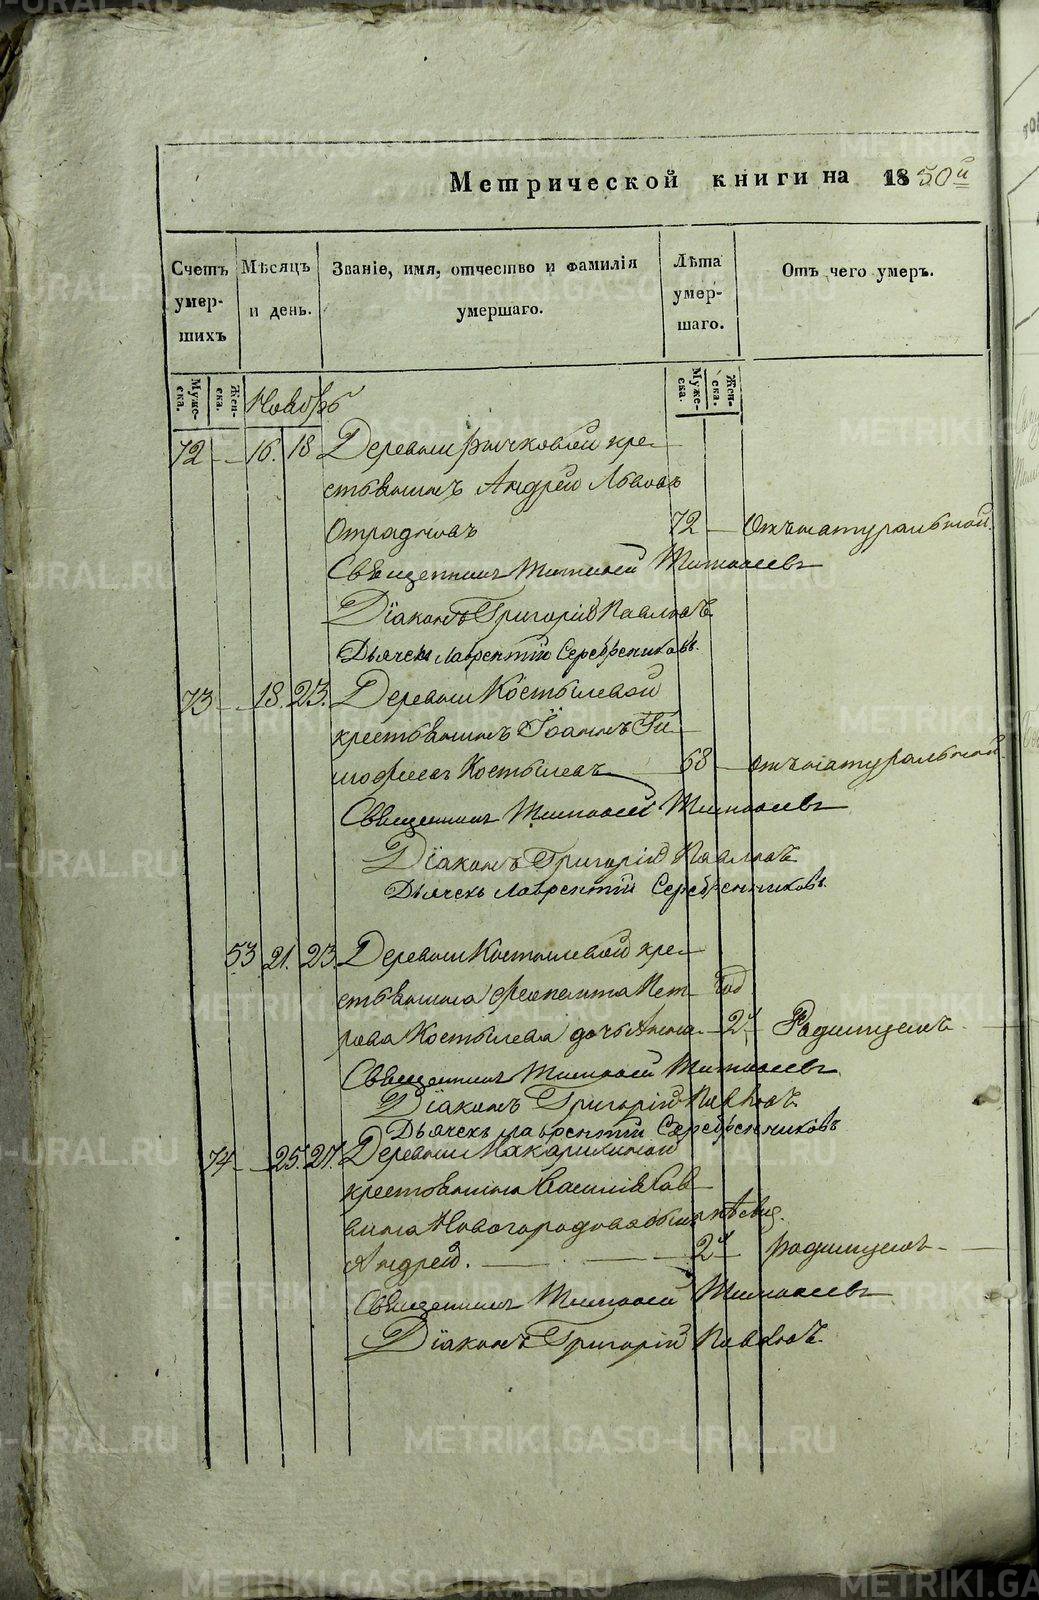 Метрической книги на 1850й
Счетъ умер-шихъ
Мѣсяцъ и день.
Званіе, имя, отчество и фамилія умершаго.
Лѣта умер-шаго.
Отъ чего умеръ.
Муже-ска.
Жен-ска.
Муже-ска.
Жен-ска.
Ноябрь
72 16. 18 Деревни Рычковой кре-
стьянинъ Андрей Львовъ
Отрадновъ 72 Отъ натуральной
Священникъ Тимофей Тимофеевъ
Діаконъ Григорій Павловъ
Дьячекъ Лаврентій Серебрениковъ.
73 18. 23. Деревни Костылевой
крестьянинъ Іоаннъ Ти-
мофеевъ Костылевъ 68 отъ натуральной
Священникъ Тимофей Тимофеевъ
Діаконъ Григорій Павловъ
Дьячекъ Лаврентій Серебренниковъ.
53 21. 23. Деревни Костылевой кре-
стьянина Феопемта Пет- год
рова Костылева дочь Анна 2 Родимцемъ
Священникъ Тимофей Тимофеевъ
Діаконъ Григорій Павловъ
Дьячекъ Лаврентій Серебренниковъ
74 25. 27. Деревни Макарихиной
крестьянина Василія Сав-
вина Новогородова сынъ мѣсяц.
Андрей. 2 родимцемъ
Священникъ Тимофей Тимофеевъ
Діаконъ Григорій Павловъ
METRIKI.GASO-URAL.RU